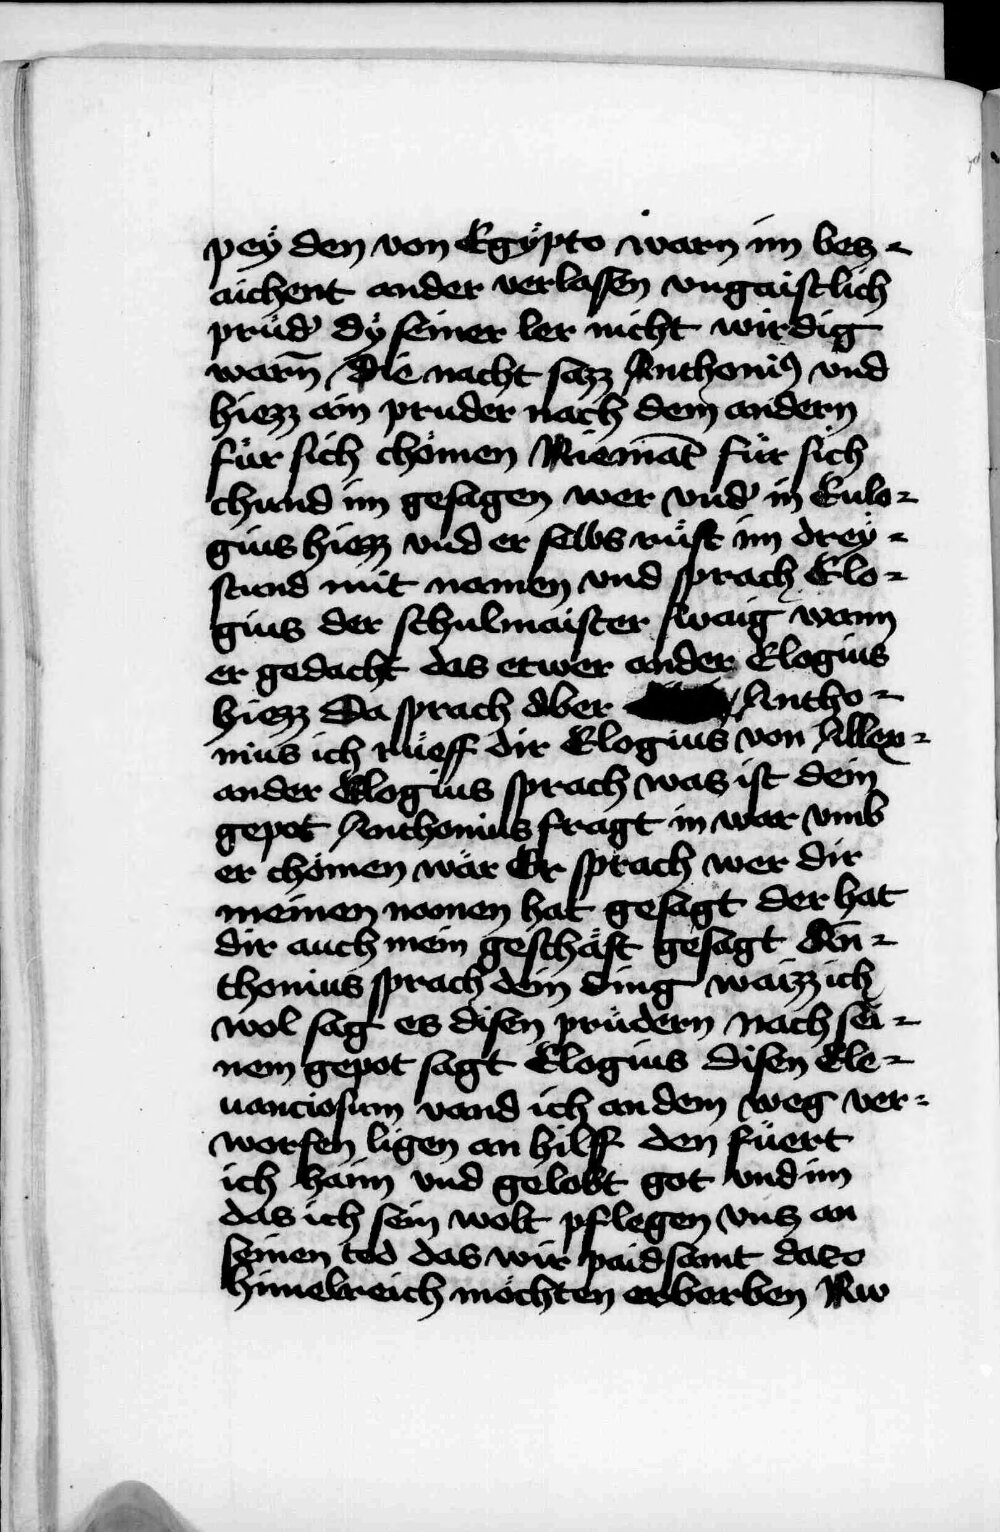 peÿ den von Egÿpto warn im bez-
aichent ander verlassen vngaistlich
prüd' dÿ seiner ler nicht wirdig
warn̄ Die nacht sazz Anthoni9 vnd
hiezz ain pruder nach dem andern
für sich chömen Niemāt für sich
chund im gesagen wer vnd' in Eulo-
gius hiezz vnd er selbs rüft im dreÿ-
stund mit namen vnd sprach Elo-
gius der schulmaister swaig wann
er gedacht das etwer ander Elogius
hiezz Da sprach aber Antho-
nius ich rüeff dir Elogius von Allex-
ander Elogius sprach was ist dein
gepot Anthonius fragt in war vmb
er chömen wär Er sprach wer dir
meinen namen hat gesagt der hat
dir auch mein geschäft gesagt An-
thonius sprach dein ding waizz ich
wol sag es disen prüdern Nach sei-
nem gepot sagt Elogius disen Ele-
uanciosum vand ich an dem weg ver-
worfen ligen an hilff den füert
ich haim vnd gelobt got vnd im
das ich sein wolt pflegen vnz an
seinen tod das wir paid samt daz
himelreich möchten erberben Nw